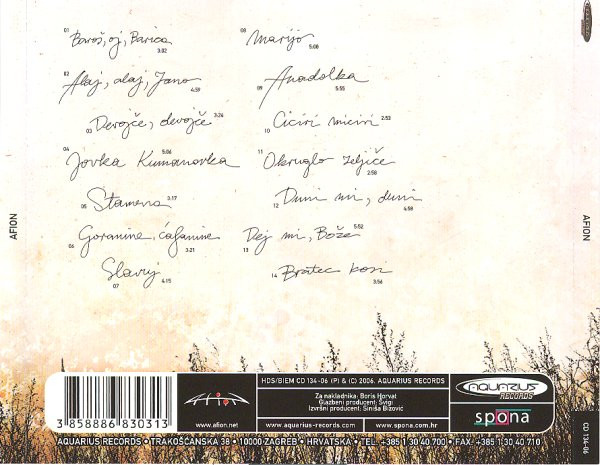 01 Baroš, oj, Barica 3:02
02 Alaj, alaj, Jano 4:59
03 Devojče, devojče 3:26
04 Jovka Kumanovka 5:06
05 Stamena 3:17
06 Goranine, ćafanine 3:21
07 Slavuj 4:15
08 Marijo 5:00
09 Anadolka 5:55
10 Ciciri miciri 2:53
11 Okruglo jeljiče 2:58
12 Duni mi, duni 4:58
13 Dej mi, Bože 5:52
14 Bratec kosi 3:56
AFION
AFION
AQUARIUS RECORDS
CD 134-06
3 858886 830313
afion
www.afion.net
HDS/BIEM CD 134-06 (P) & (C) 2006. AQUARIUS RECORDS
Za nakladnika: Boris Horvat
Glazbeni producent: Švigi
Izvršni producent: Siniša Bizović
www.aquarius-records.com
www.spona.com.hr
AQUARIUS RECORDS
spona
AQUARIUS RECORDS • TRAKOŠĆANSKA 38 • 10000 ZAGREB • HRVATSKA • TEL. +385 1 30 40 700 • FAX. +385 1 30 40 710